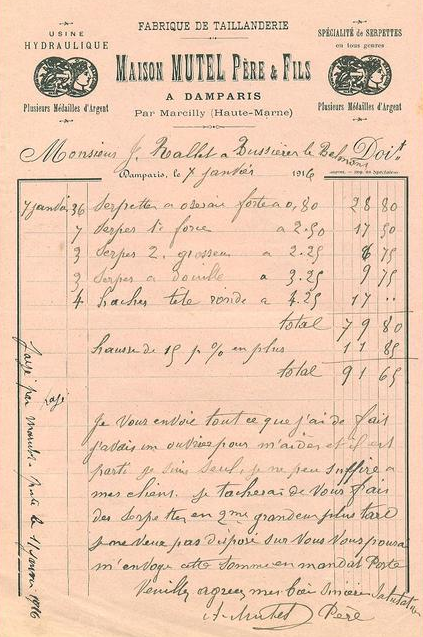 FABRIQUE DE TAILLANDERIE
USINE
HYDRAULIQUE
Plusieurs Médailles d'Argent
MAISON MUTEL PÈRE & FILS
A DAMPARIS
Par Marcilly (Haute-Marne)
SPÉCIALITÉ DE SERPETTES
en tous genres
Plusieurs Médailles d'Argent
Monsieur J. Rallet a Bussières les Belmont Doit
Damparis, le 7 janvier 1916
7 janvier 36 Serpettes a oseraie forte a 0,80 28 80
7 Serpes 1e force a 2.50 17 50
3 Serpes 2. grosseur a 2.25 6 75
3 Serpes a douille a 3.25 9 75
4 haches tete ronde a 4.25 17 ..
total 79 80
hausse de 15 p % en plus 11 85
total 91 65
Je vous envoie tout ce que j'ai de fait
j'avais un ouvrier pour m'aider et il est
parti je suis seul, je ne peu suffire a
mes cliens. je tacherai de vous fair
des Serpettes en 2me grandeur plus tard
je ne veux pas disposé sur vous vous pouvai
m'envoyé cette somme en mandat Poste
Veuillez agréez mes bien sincères salutation
A. Mutel Père
Payé par mandat poste le 11 janvier 1916